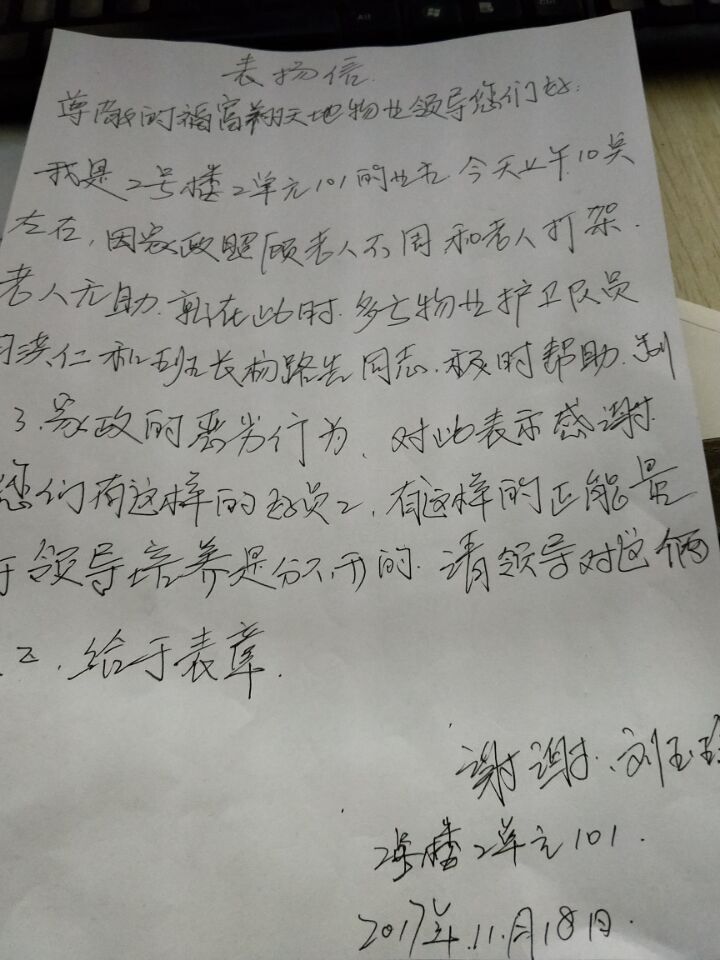 表扬信.
尊敬的福富翔天地物业领导您们好:
我是2号楼2单元101的业主 今天上午10点
左右,因家政照顾老人不周和老人打架.
老人无助.就在此时.多亏物业护卫队员
洪仁和班长杨路告同志.极时帮助.制
了.家政的恶劣行为、对此表示感谢
您们有这样的好员工,有这样的正能量
于领导培养是分不开的.请领导对这俩
工.给于表章.
谢谢.刘玉
2号楼2单元101.
2017年.11.月18日.